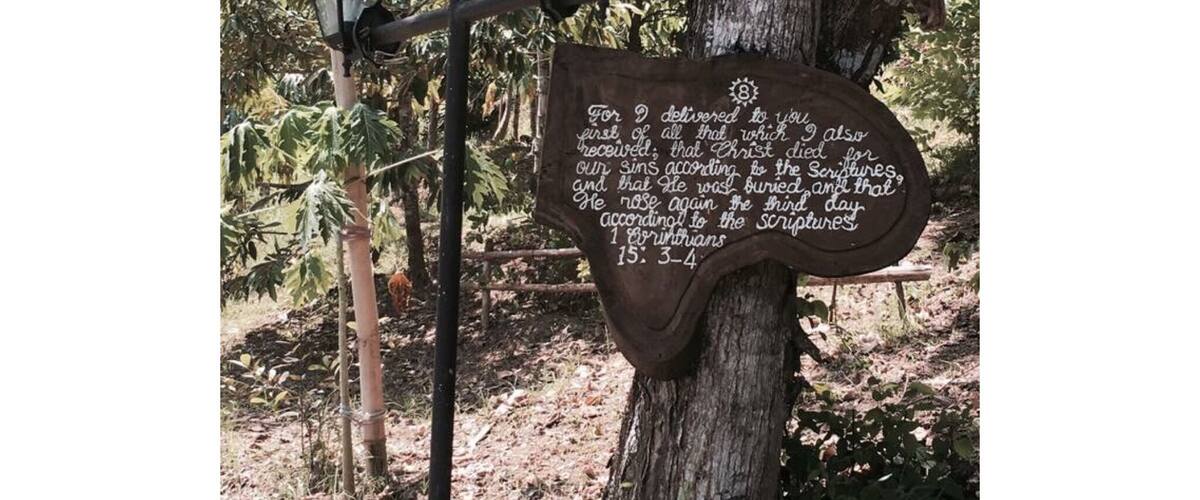 8
For I delivered to you
first of all that which I also
received: that Christ died for
our sins according to the Scriptures,
and that He was buried, and that
He rose again the third day
according to the scriptures
1 Corinthians
15: 3-4